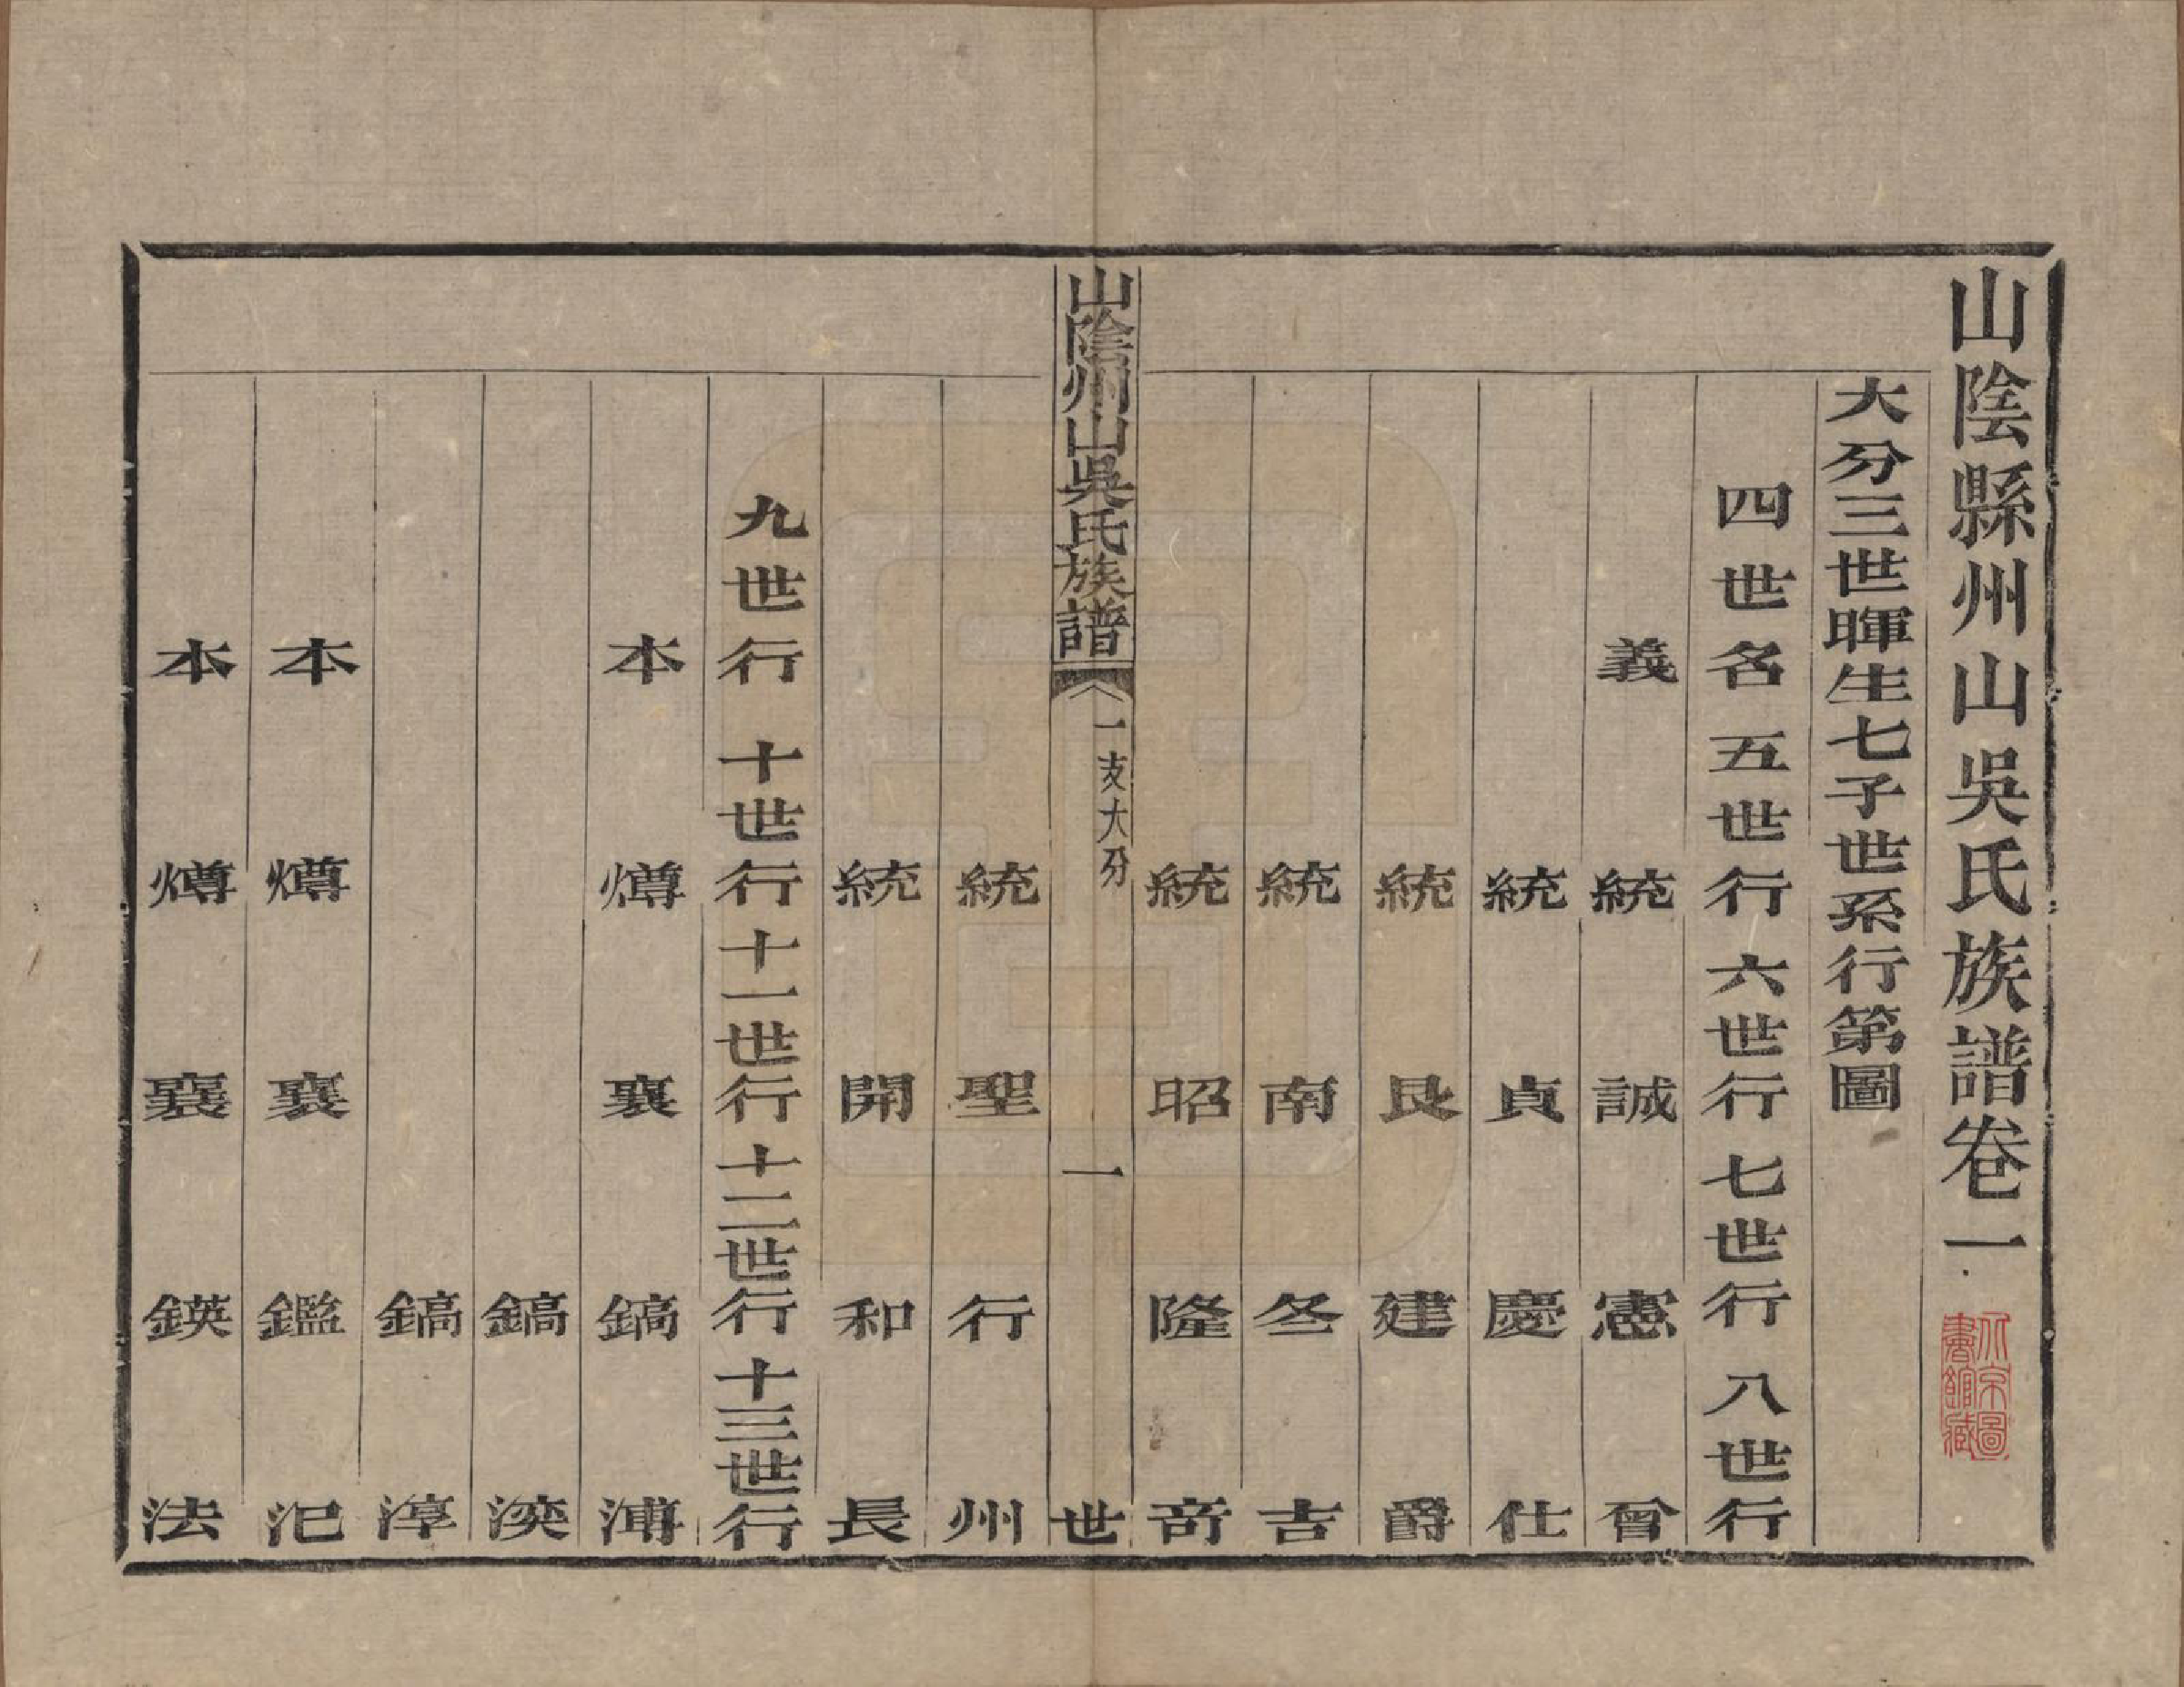 山陰縣州山吳氏族譜卷一
北京圖
書館藏
大分三世暉生七子世系行第圖
四世名 五世行 六世行 七世行 八世行
義 統 誠 憲 曾
統 貞 慶 仕
統 艮 建 爵
統 南 冬 吉
統 昭 隆 奇
山陰州山吳氏族譜 一支大分 一 世
統 聖 行 州
統 開 和 長
九世行 十世行 十一世行 十二世行 十三世行
本 燇 襄 鎬 溥
鎬 湙
鎬 淳
本 燇 襄 鑑 汜
本 燇 襄 鍈 法